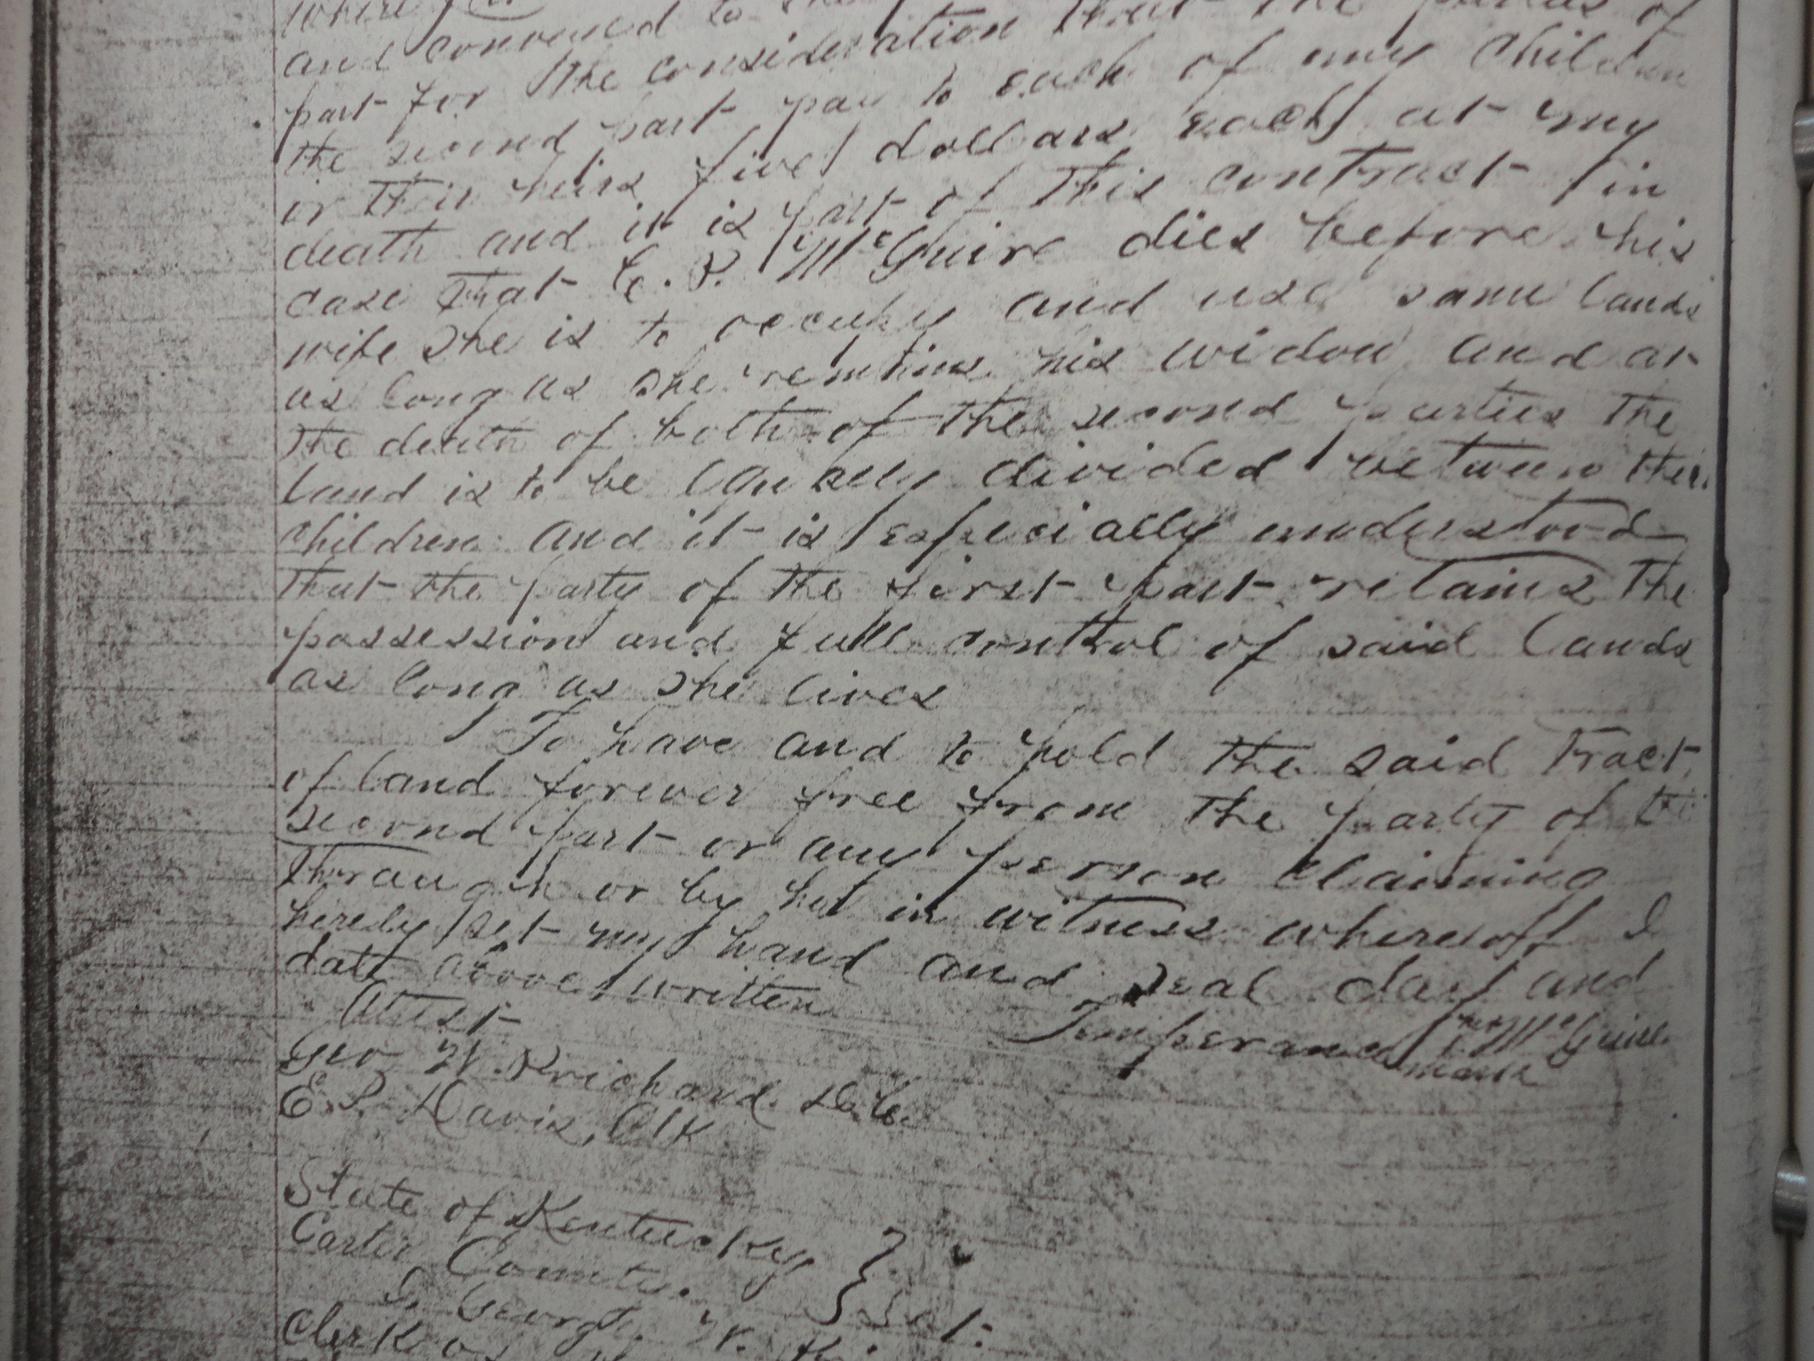 and conveyed to the
part for the consideration that the parties of
the second part pay to each of my children
or their heirs five dollars each at my
death and it is part of this contract in
case that C. P. McGuire dies before his
wife she is to occupy and use same lands
as long as she remains his widow and at
the death of both of the second parties the
land is to be equally divided between their
children and it is especially understood
that the party of the first part retains the
possession and full control of said lands
as long as she lives
To have and to hold the said tract
of land forever free from the party of the
second part or any person claiming
through or by her in witness whereoff I
hereby set my hand and seal day and
date above written
Attest
Temperance her McGuire
mark
Geo W. Prichard D.C.
E. P. Davis, Clk
State of Kentucky }
Carter County. } Sct.
I, George W.
Clerk of